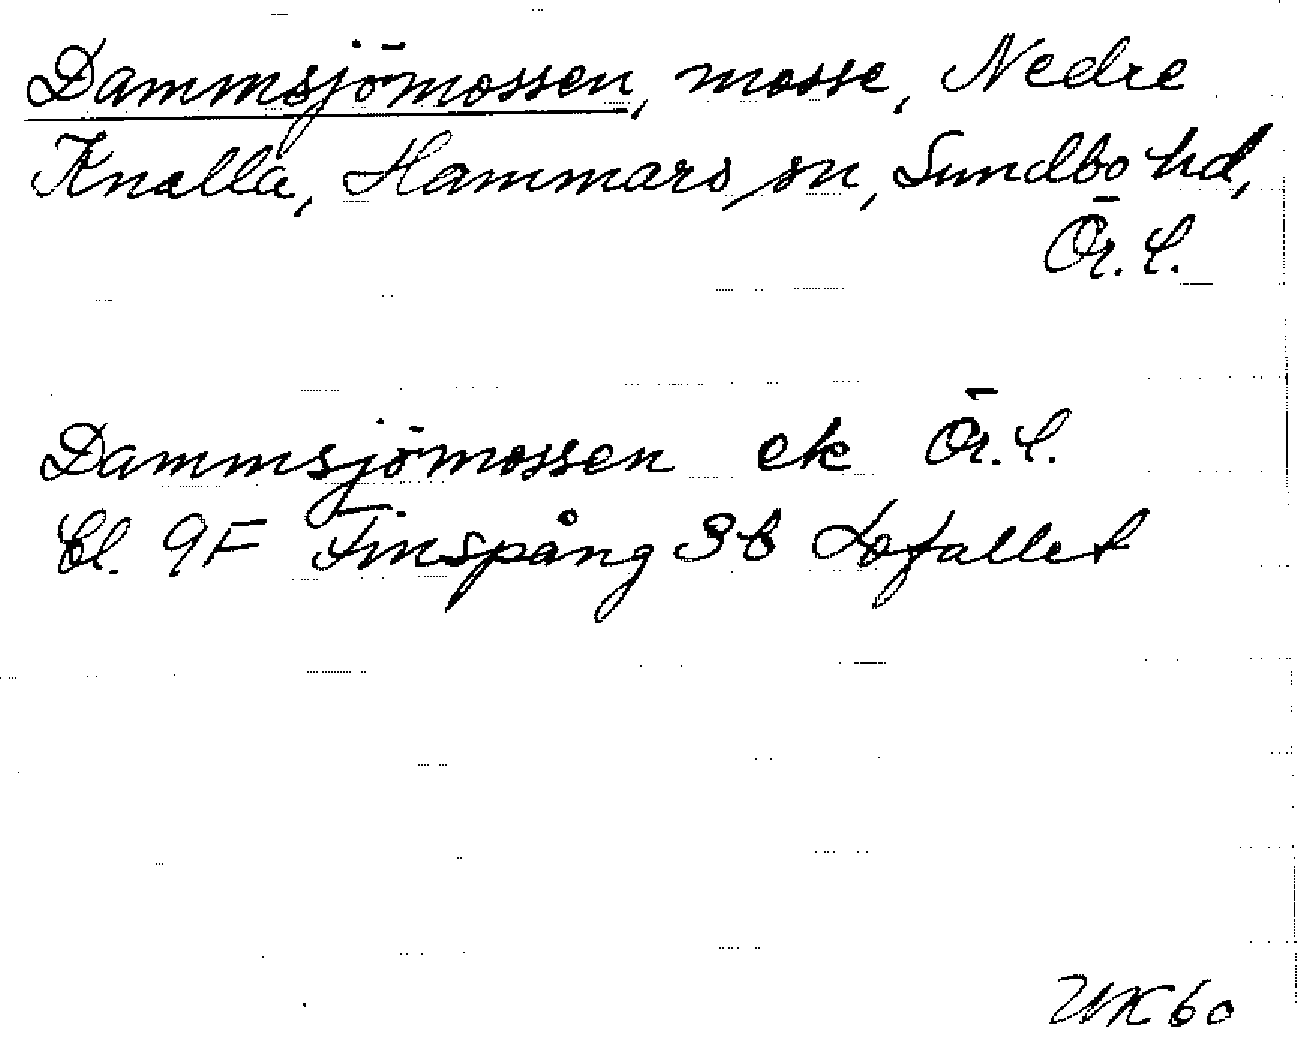 Dammsjömossen, mosse, Nedre
Knalla, Hammars sn, Sundbo hd,
Ör. l.
Dammsjömossen ek Ör. l.
Bl. 9F Finspång 3b Löfallet
UK 60